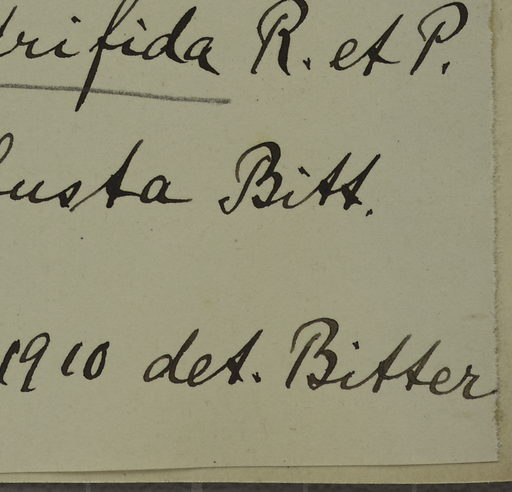 trifida R. et P.
usta Bitt.
1910 det. Bitter